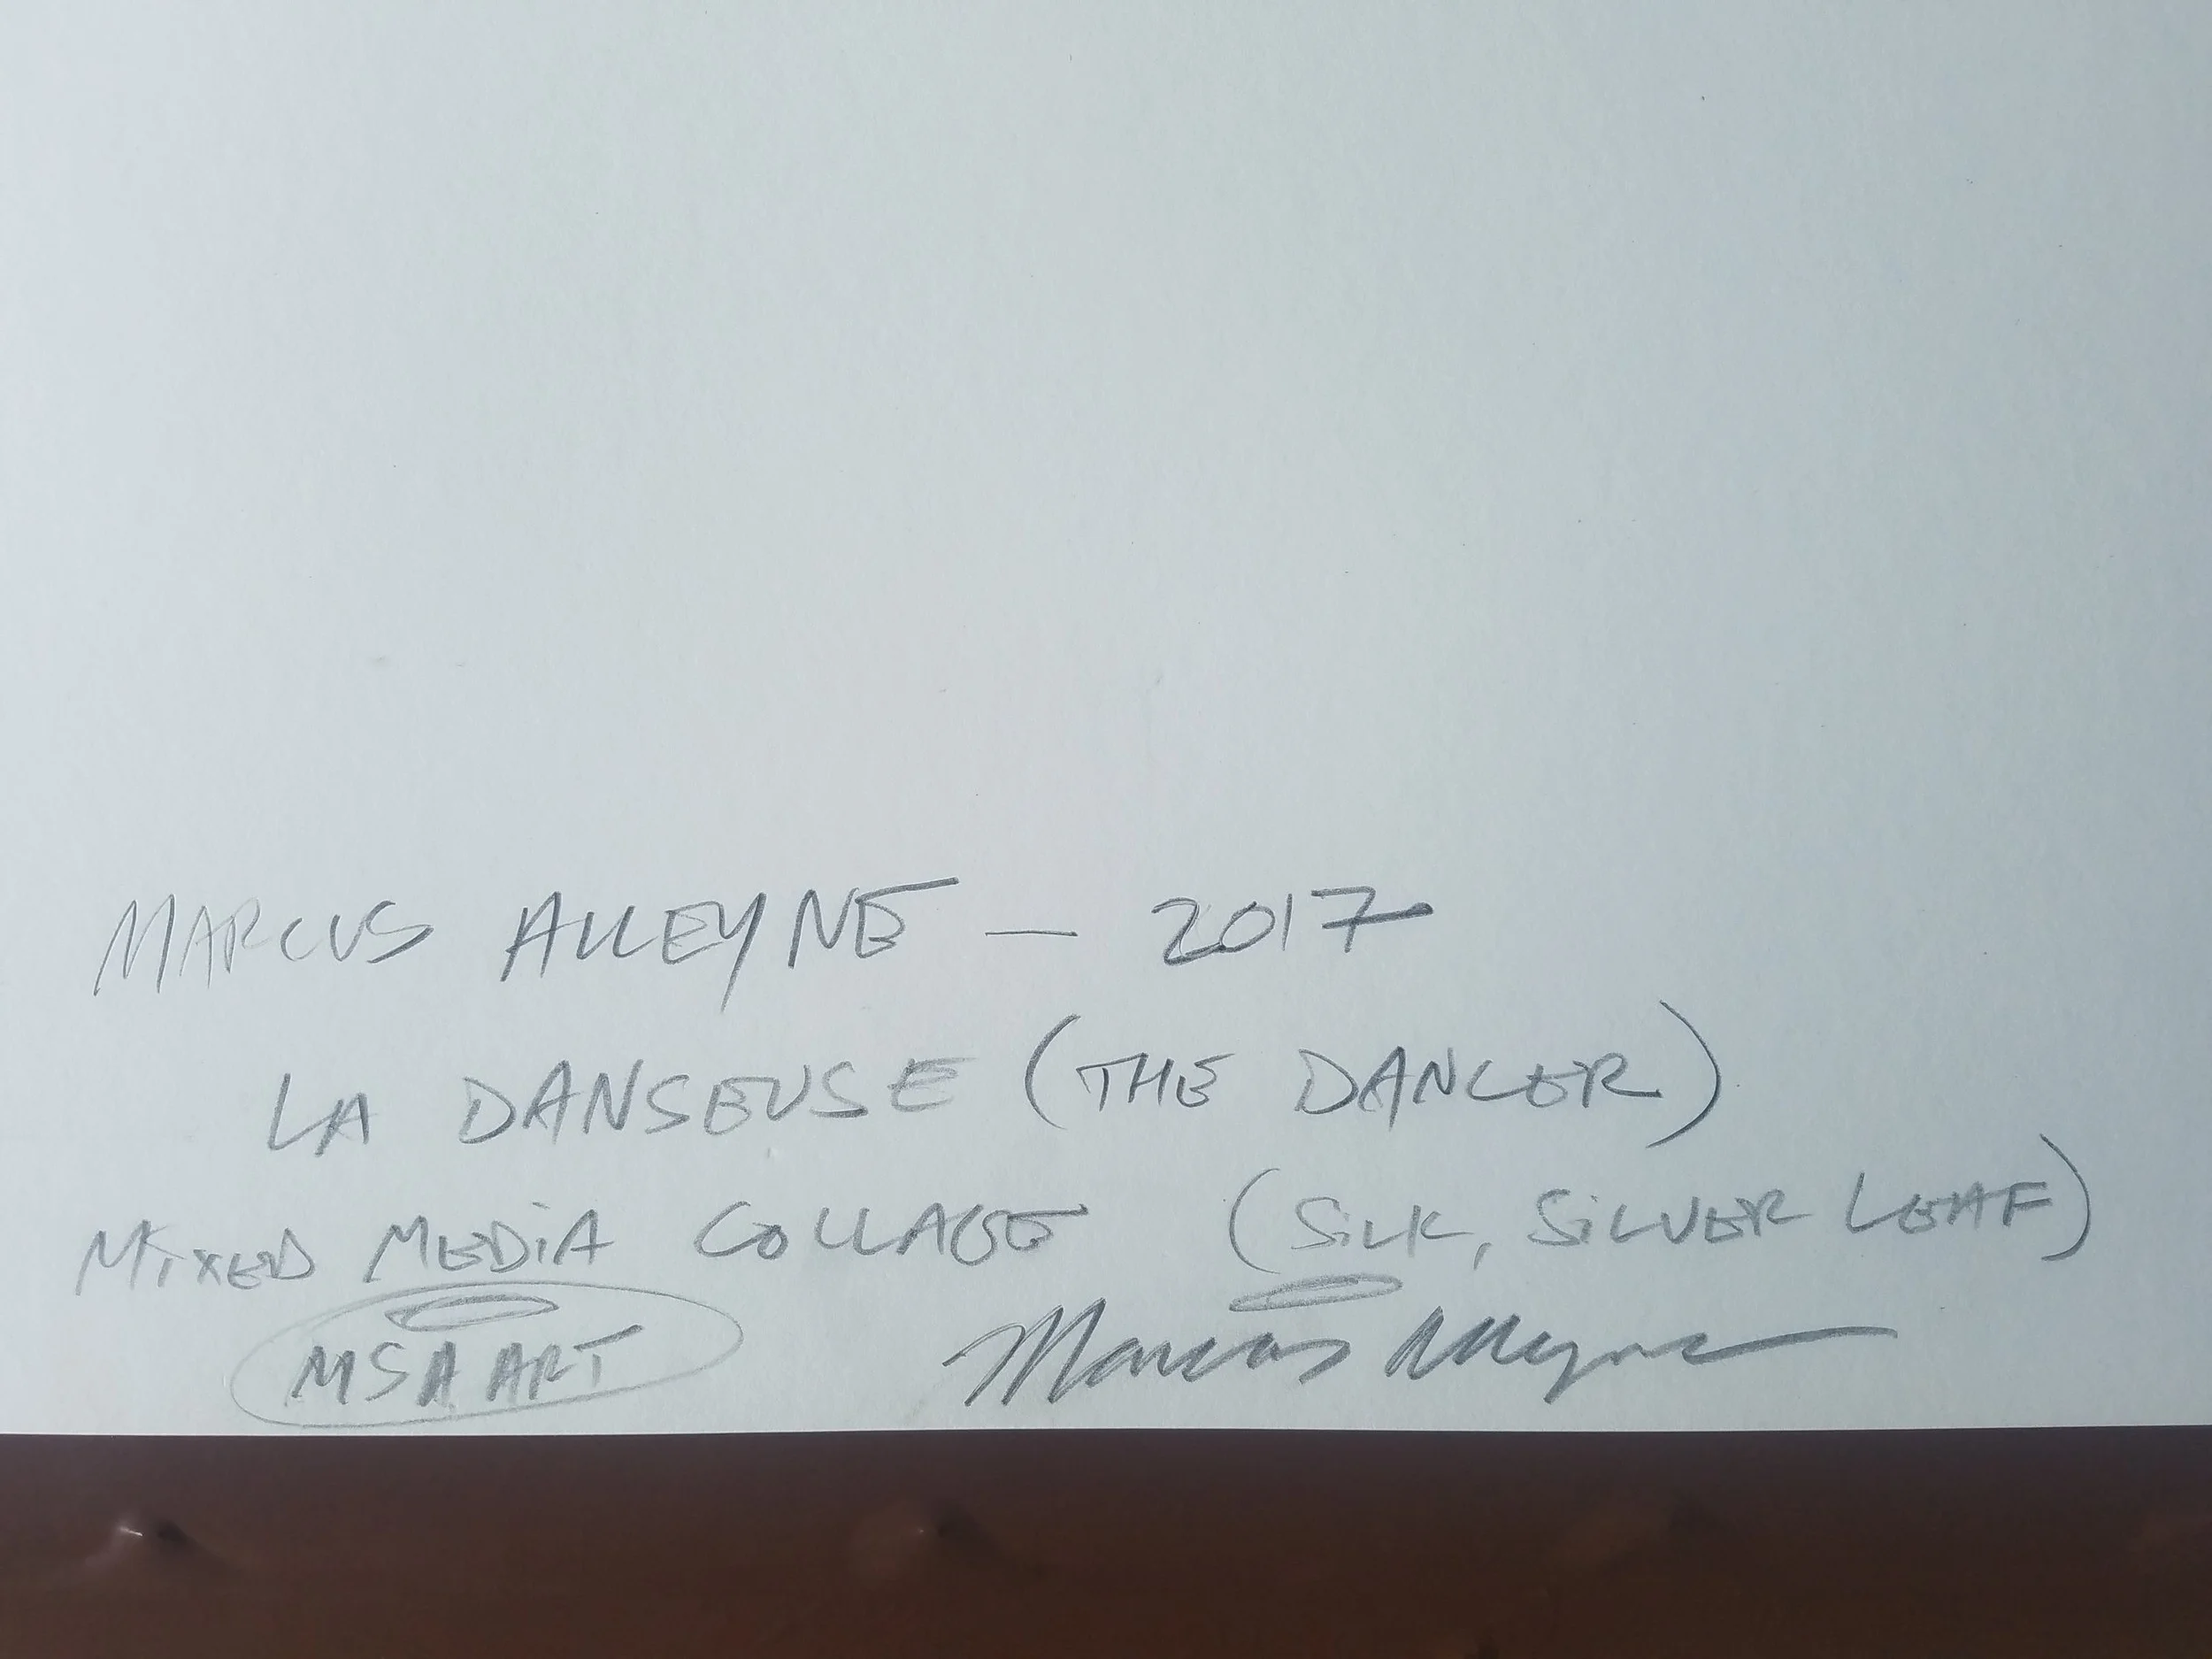 MARCUS ALLEYNE — 2017
LA DANSEUSE (THE DANCER)
MIXED MEDIA COLLAGE (SILK, SILVER LEAF)
MSA ART Marcus Alleyne